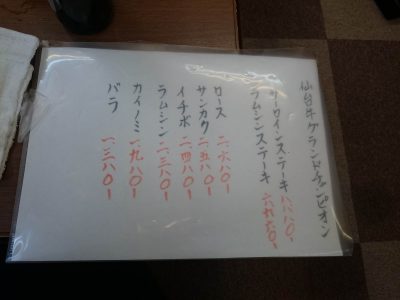 仙台牛グランドチャンピオン
サーロインステーキ 八八八〇ー
ラムシンステーキ 六九六〇ー
ロース 二、六八〇ー
サンカク 二、五八〇ー
イチボ 二、四八〇ー
ラムシン 二、三八〇ー
カイノミ 一、九八〇ー
バラ 一、三八〇ー